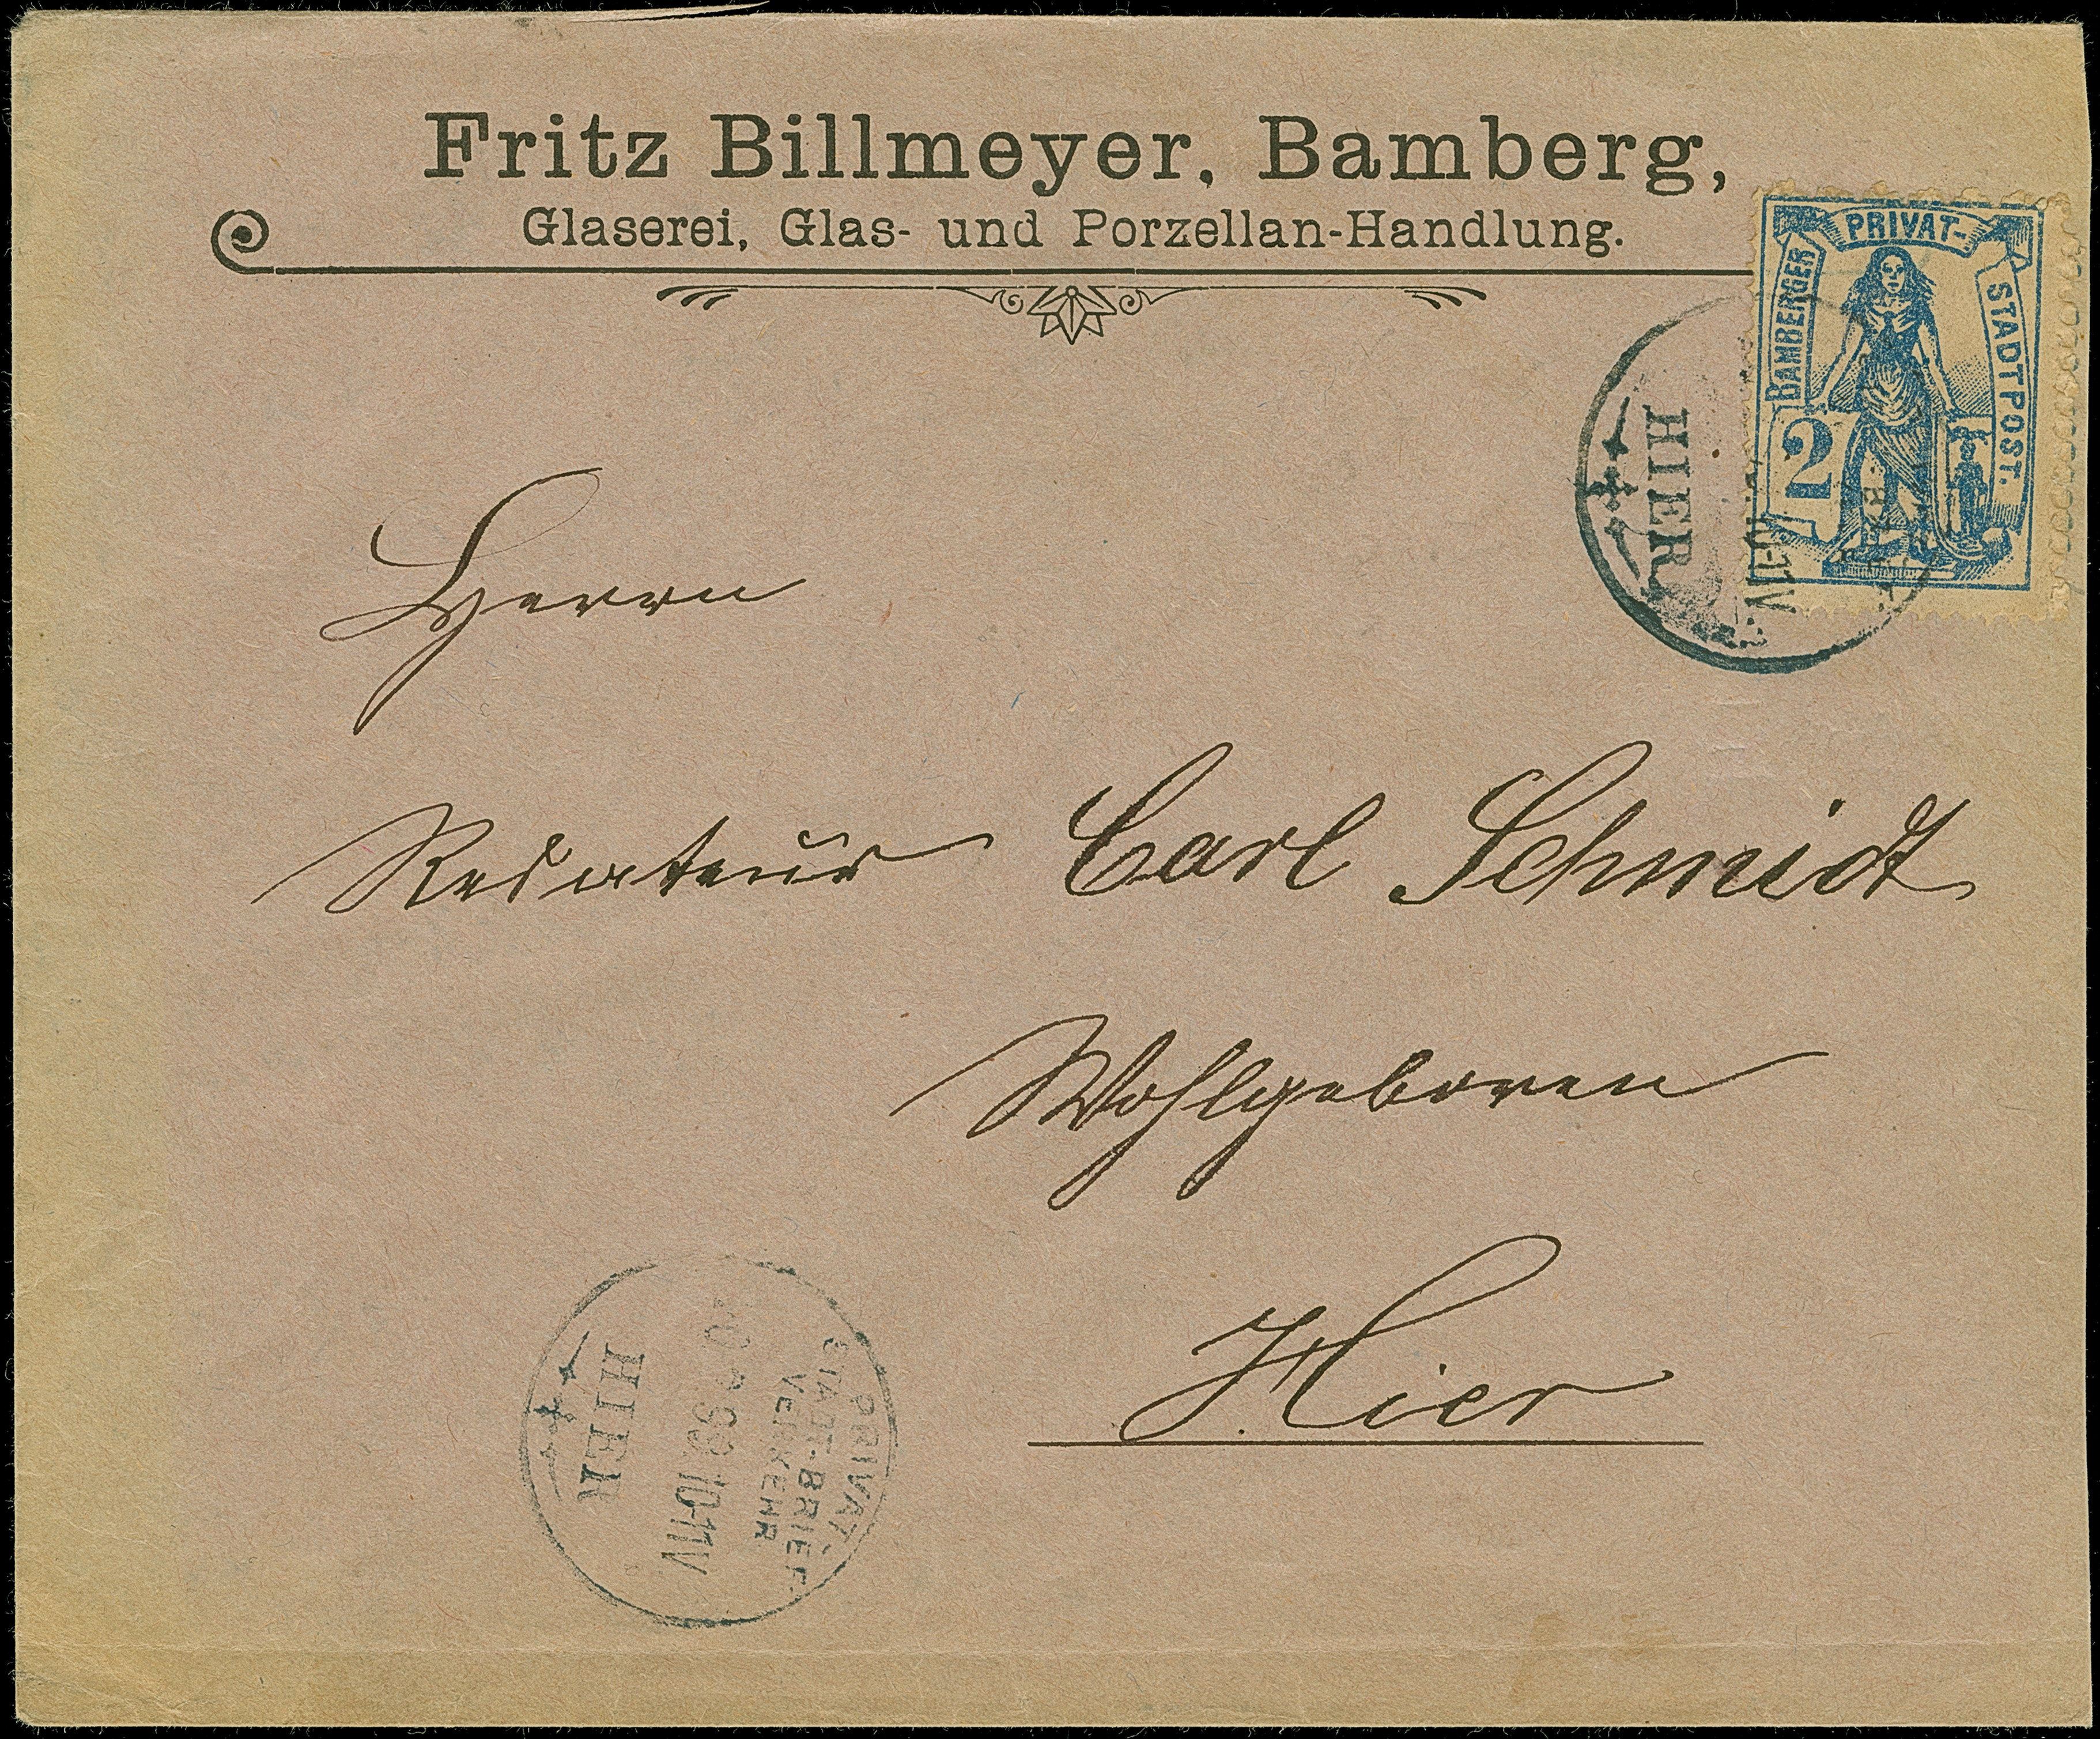 Fritz Billmeyer, Bamberg,
Glaserei, Glas- und Porzellan-Handlung.
BAMBERGER
PRIVAT-
STADTPOST.
2
HIER
10-11V
Herrn
Redateur Carl Schmidt
Wohlgeboren
Hier
PRIVAT-
STADT-BRIEF
VERKEHR
10-11V
HIER